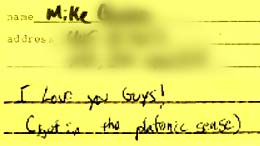 name Mike
address
I Love you Guys!
(but in the platonic sense)